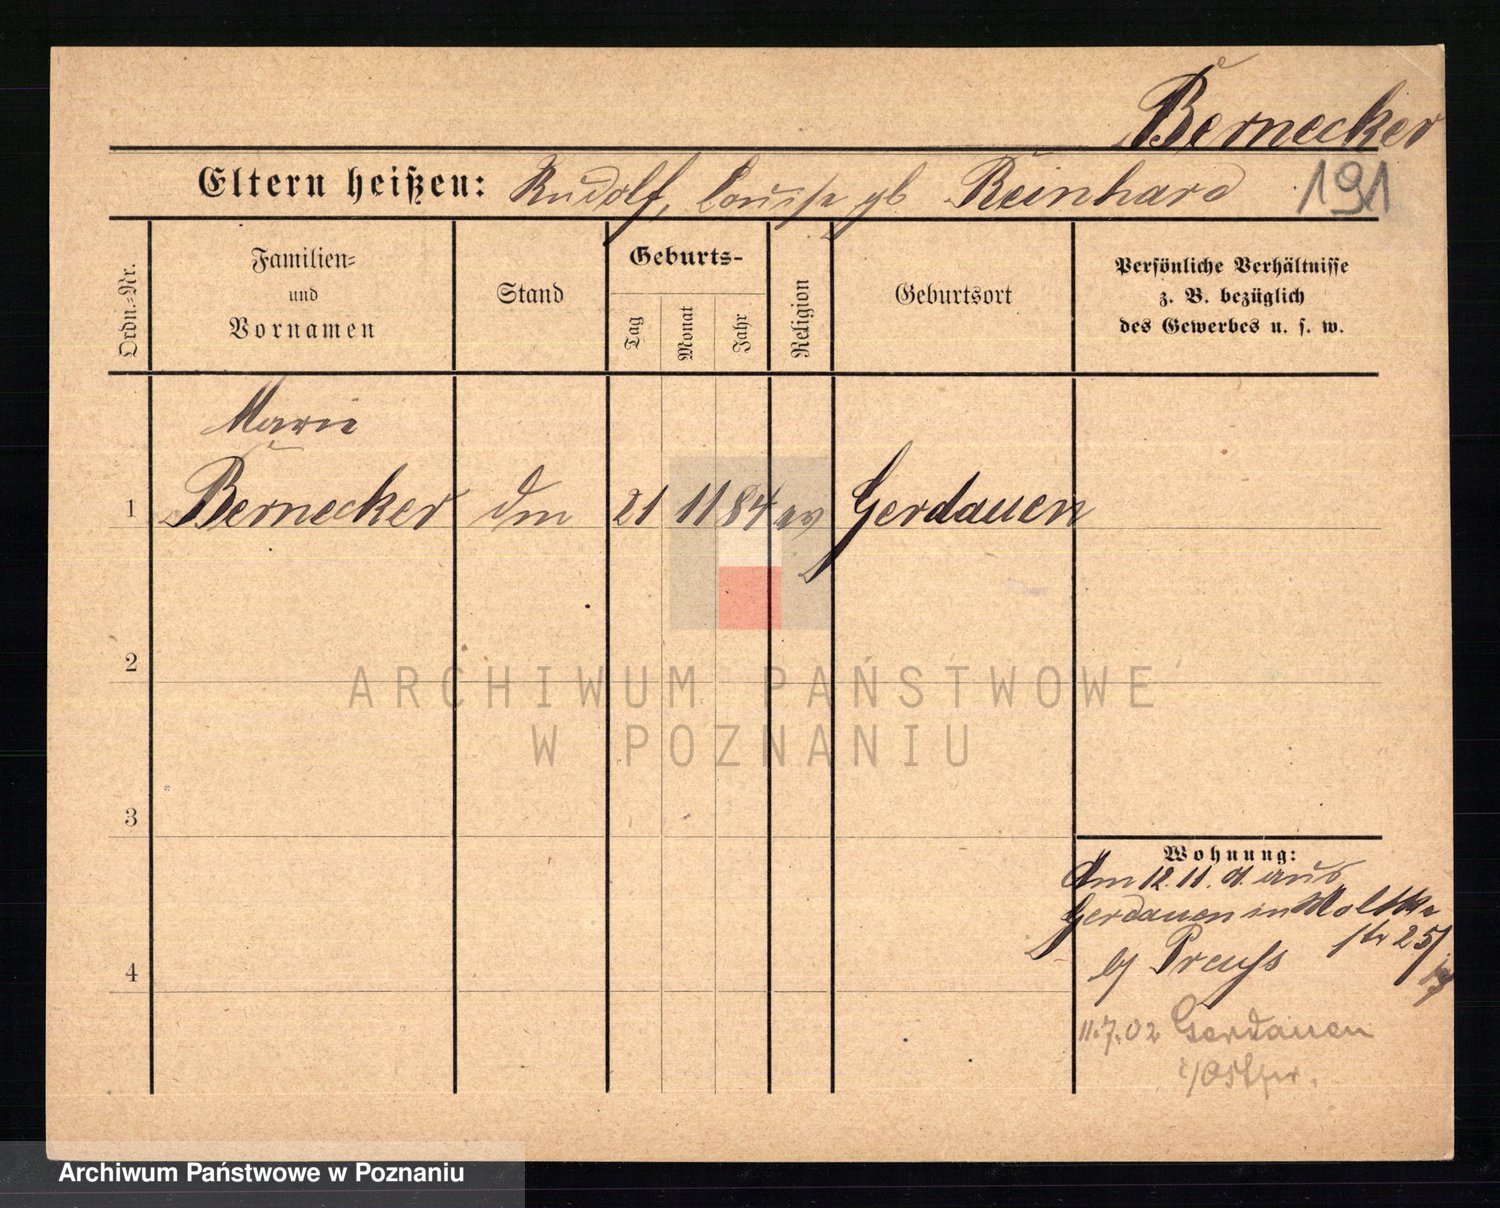 Bernecker
Eltern heißen: Rudolf, Louise gb Reinhard 191
Ordn.-Nr.
Familien-
und
Vornamen
Stand
Geburts-
Tag
Monat
Jahr
Religion
Geburtsort
Persönliche Verhältnisse
z. B. bezüglich
des Gewerbes u. s. w.
Marie
1 Bernecker dm 21 11 84 ev Gerdauen
2
ARCHIWUM PAŃSTWOWE
W POZNANIU
3
Wohnung:
Am 12.11. 01. aus
Gerdauen in Moltke
str 25/
b/ Preuss
4
11.7.02 Gerdauen
i/Ostpr.
Archiwum Państwowe w Poznaniu